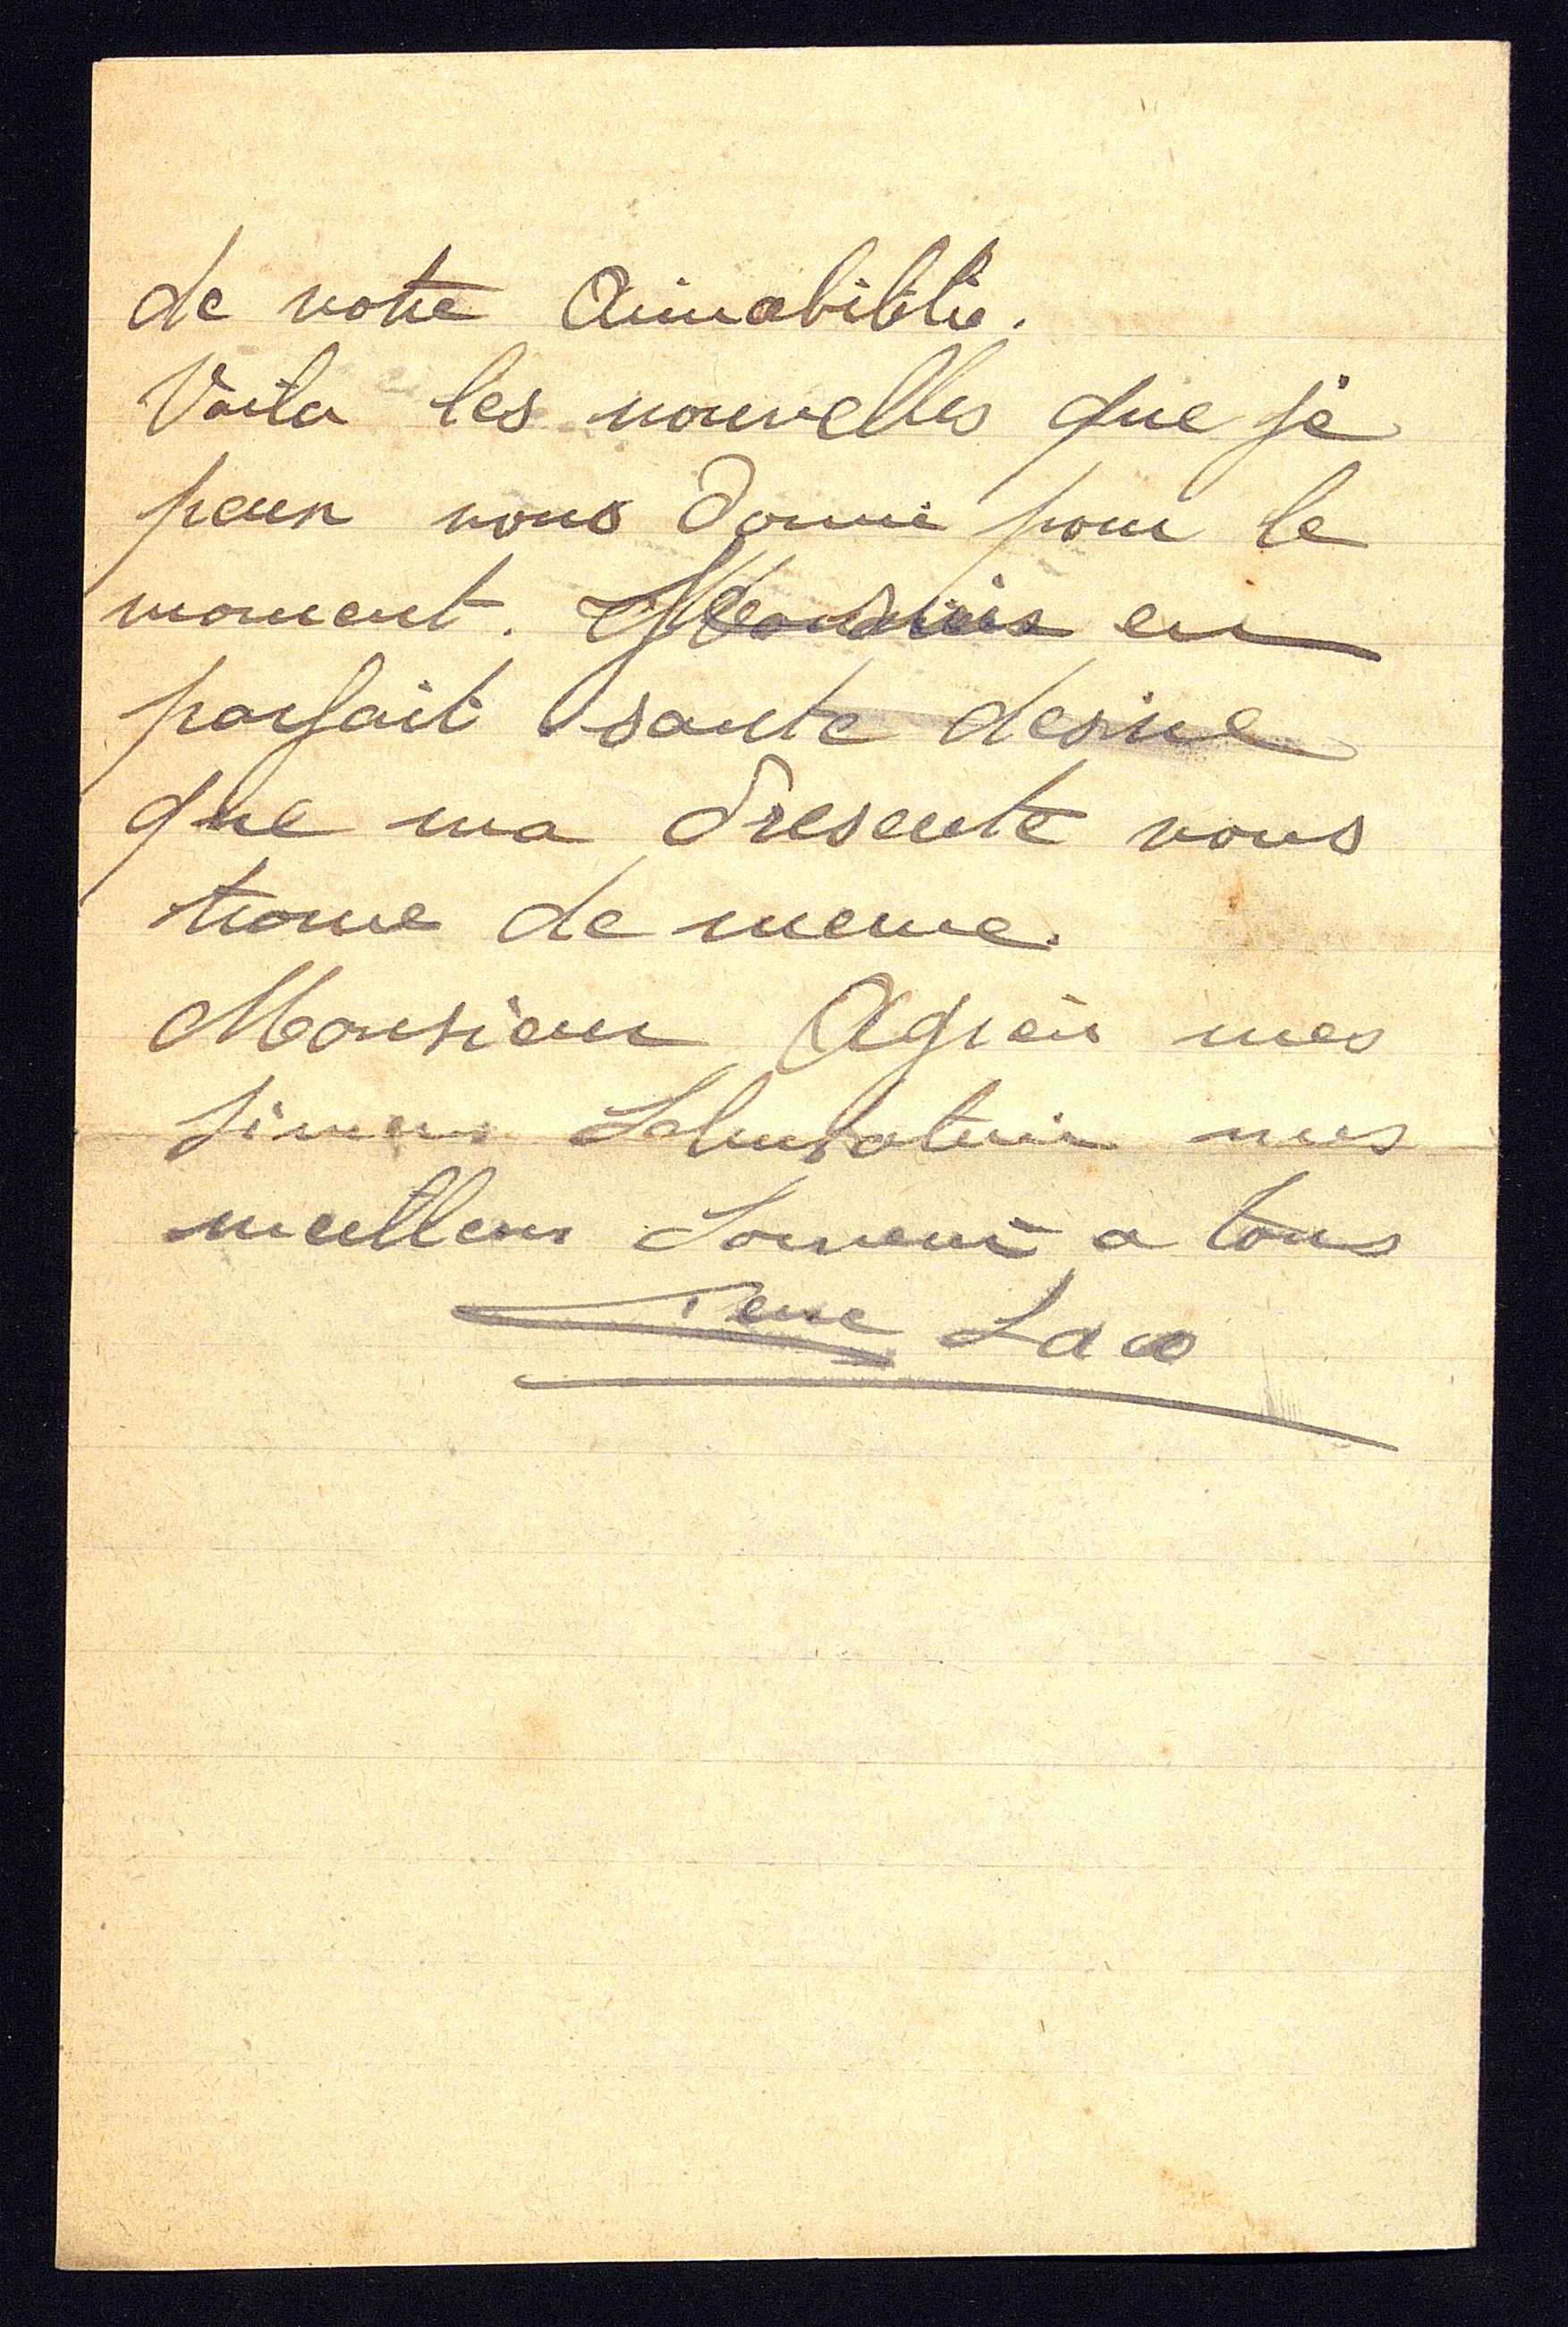 de votre Aimabilitie.
Voila les nouvelles que je
peux vous donnè pour le
moment. en
parfait sante desire
que ma presente vous
trouve de meme.
Monsieur Agreis mes
sinceres Saluutation mes
meilleurs Souvenir a tous